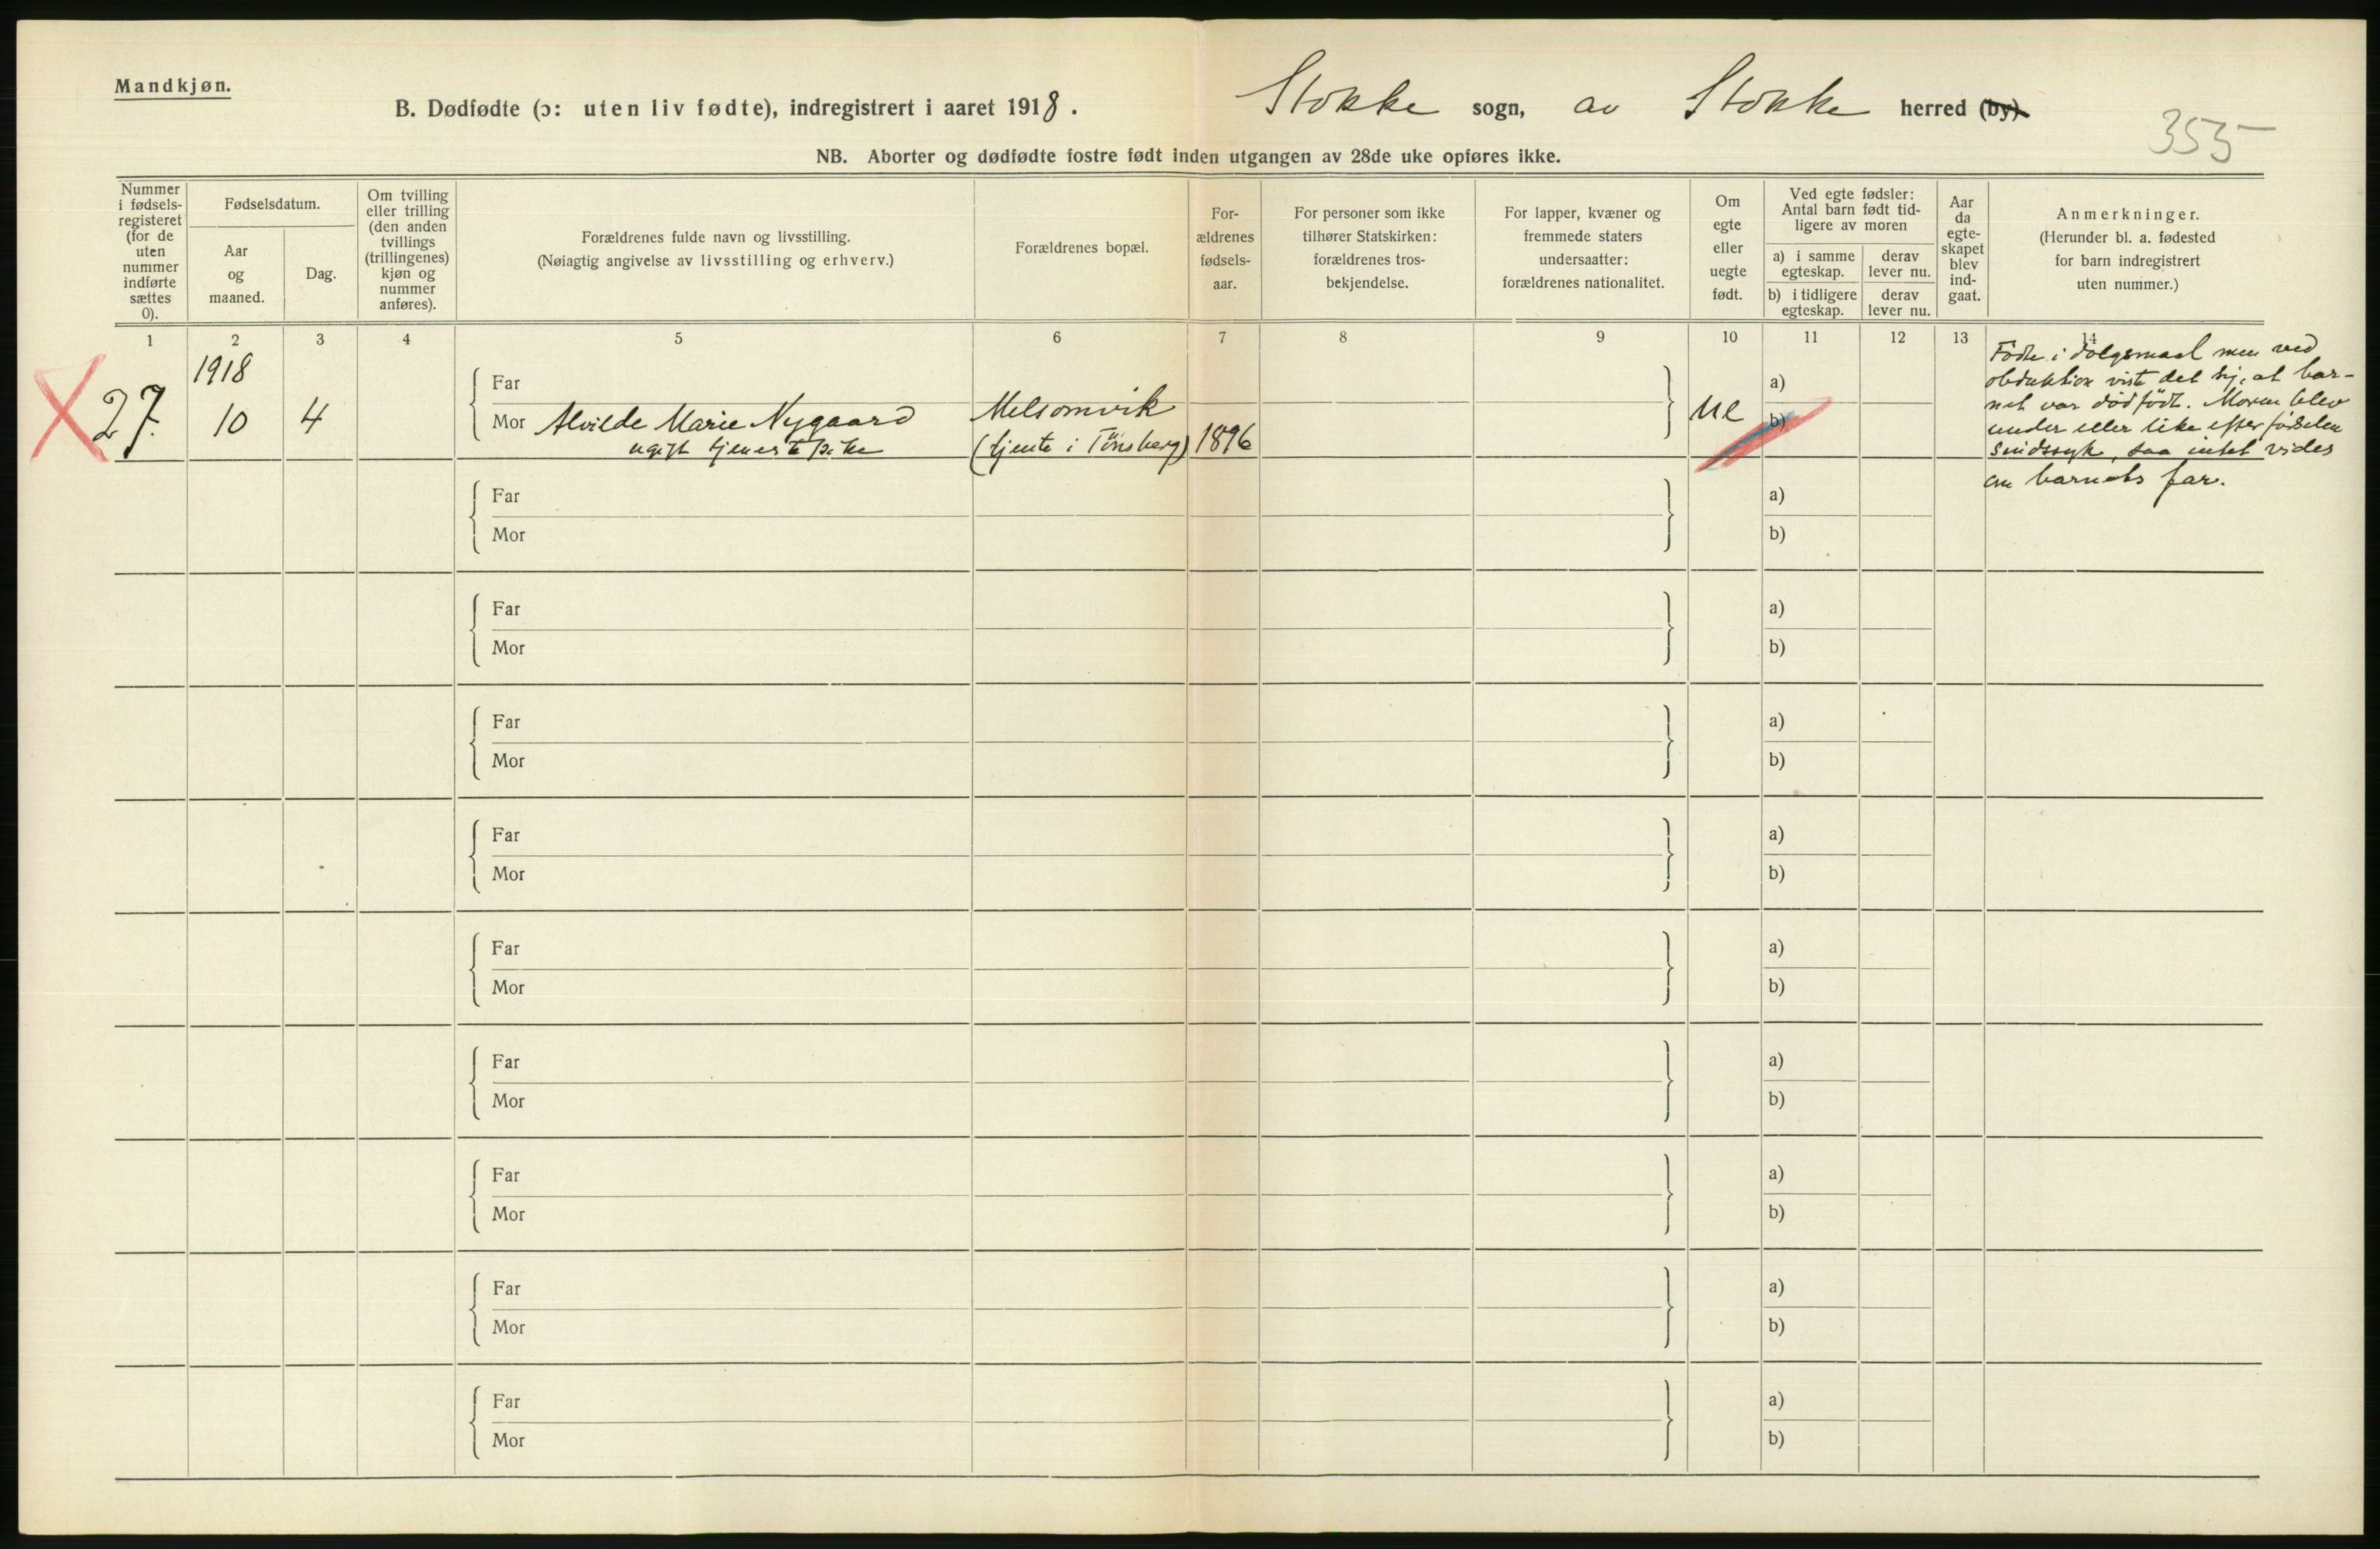 Mandkjøn.
B. Dødfødte (ɔ: uten liv fødte), indregistrert i aaret 1918. Stokke sogn, av Stokke herred (by)
355
NB. Aborter og dødfødte fostre født inden utgangen av 28de uke opføres ikke.
Nummer
i fødsels-
registeret
(for de
uten
nummer
indførte
sættes
0).
Fødselsdatum.
Aar
og
maaned.
Dag.
Om tvilling
eller trilling
(den anden
tvillings
(trillingenes)
kjøn og
nummer
anføres).
Forældrenes fulde navn og livsstilling.
(Nøiagtig angivelse av livsstilling og erhverv.)
Forældrenes bopæl.
For-
ældrenes
fødsels-
aar.
For personer som ikke
tilhører Statskirken:
forældrenes tros-
bekjendelse.
For lapper, kvæner og
fremmede staters
undersaatter:
forældrenes nationalitet.
Om
egte
eller
uegte
født.
Ved egte fødsler:
Antal barn født tid-
ligere av moren
a) i samme
egteskap.
derav
lever nu.
b) i tidligere
egteskap.
derav
lever nu.
Aar
da
egte-
skapet
blev
ind-
gaat.
Anmerkninger.
(Herunder bl. a. fødested
for barn indregistrert
uten nummer.)
1 2 3 4 5 6 7 8 9 10 11 12 13 14
27.
1918
10 4
Far
Mor Alvilde Marie Nygaard
ugift tjenestepike
Melsomvik
(tjente i Tönsberg)
1896
ue
a)
b)
Födt i dölgsmaal men ved
obduktion viste det sig, at bar-
net var dödfödt. Moren blev
under eller like efter födselen
sindssyk, saa intet vides
om barnets far.
Far
Mor
a)
b)
Far
Mor
a)
b)
Far
Mor
a)
b)
Far
Mor
a)
b)
Far
Mor
a)
b)
Far
Mor
a)
b)
Far
Mor
a)
b)
Far
Mor
a)
b)
Far
Mor
a)
b)